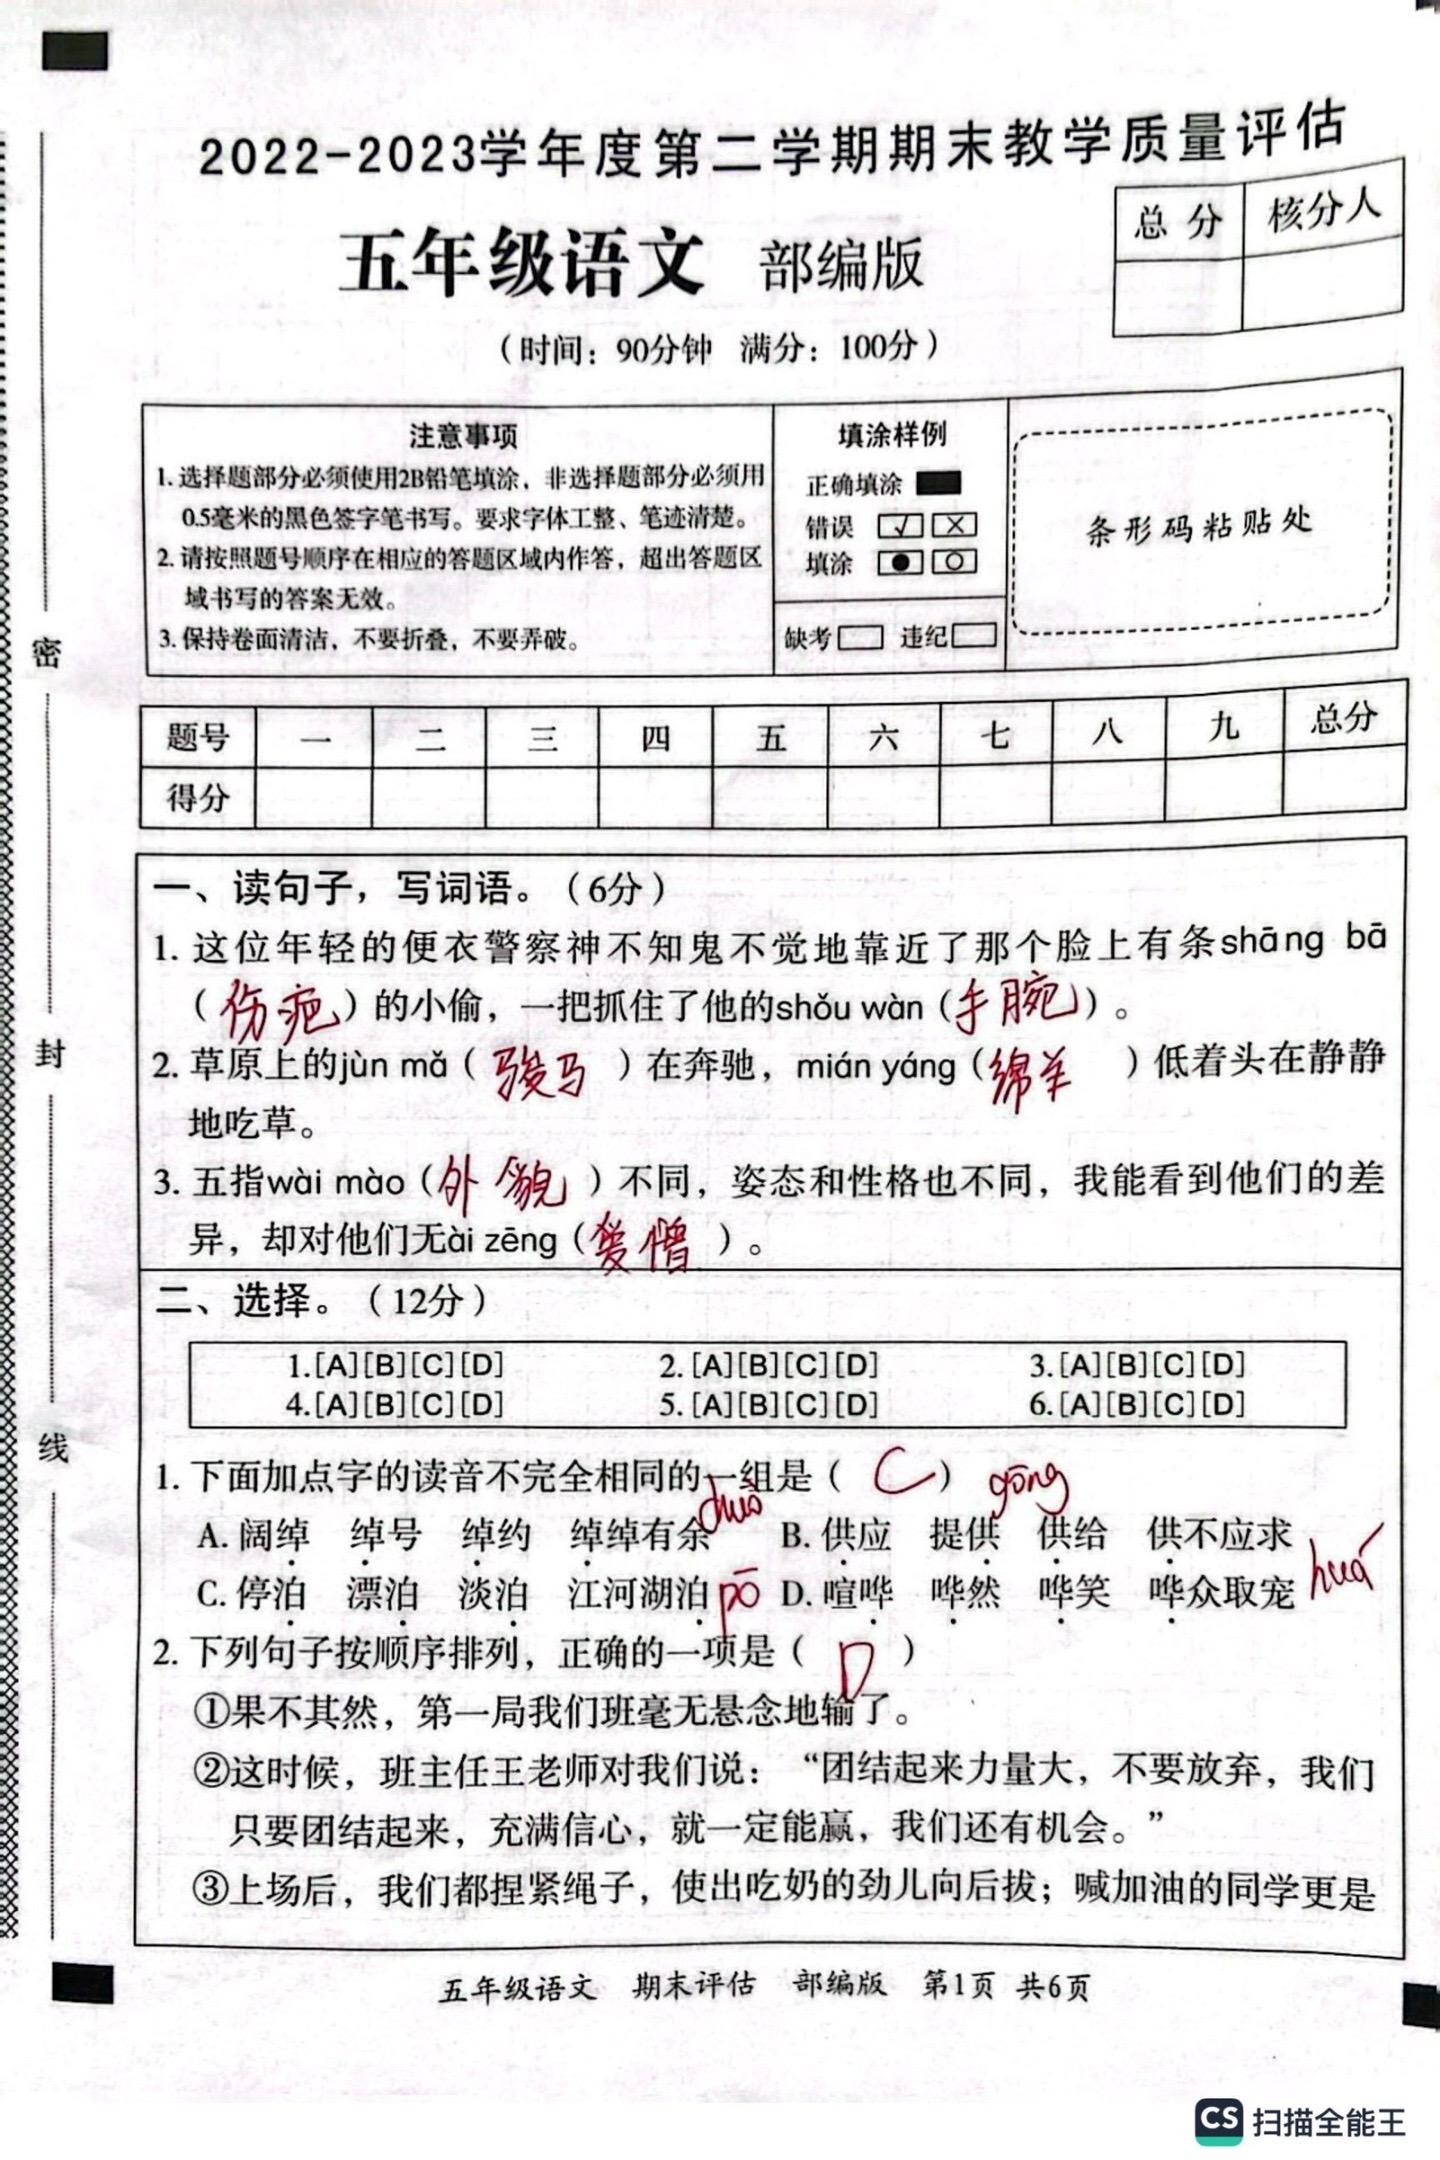 2022-2023学年度第二学期期末教学质量评估
总 分 核分人
五年级语文 部编版
（时间：90分钟 满分：100分）
注意事项
1. 选择题部分必须使用2B铅笔填涂，非选择题部分必须用
0.5毫米的黑色签字笔书写。要求字体工整、笔迹清楚。
2. 请按照题号顺序在相应的答题区域内作答，超出答题区
域书写的答案无效。
3. 保持卷面清洁，不要折叠，不要弄破。
填涂样例
正确填涂
错误
填涂
缺考 违纪
条形码粘贴处
密
封
线
题号 一 二 三 四 五 六 七 八 九 总分
得分
一、读句子，写词语。（6分）
1. 这位年轻的便衣警察神不知鬼不觉地靠近了那个脸上有条shāng bā
（伤疤）的小偷，一把抓住了他的shǒu wàn（手腕）。
2. 草原上的jùn mǎ（骏马）在奔驰，mián yáng（绵羊）低着头在静静
地吃草。
3. 五指wài mào（外貌）不同，姿态和性格也不同，我能看到他们的差
异，却对他们无ài zēng（爱憎）。
二、选择。（12分）
1.[A][B][C][D] 2.[A][B][C][D] 3.[A][B][C][D]
4.[A][B][C][D] 5.[A][B][C][D] 6.[A][B][C][D]
1. 下面加点字的读音不完全相同的一组是（ C ） gōng
A. 阔绰 绰号 绰约 绰绰有余 chuò B. 供应 提供 供给 供不应求
C. 停泊 漂泊 淡泊 江河湖泊 pō D. 喧哗 哗然 哗笑 哗众取宠 huá
2. 下列句子按顺序排列，正确的一项是（ D ）
①果不其然，第一局我们班毫无悬念地输了。
②这时候，班主任王老师对我们说：“团结起来力量大，不要放弃，我们
只要团结起来，充满信心，就一定能赢，我们还有机会。”
③上场后，我们都捏紧绳子，使出吃奶的劲儿向后拔；喊加油的同学更是
五年级语文 期末评估 部编版 第1页 共6页
CS 扫描全能王